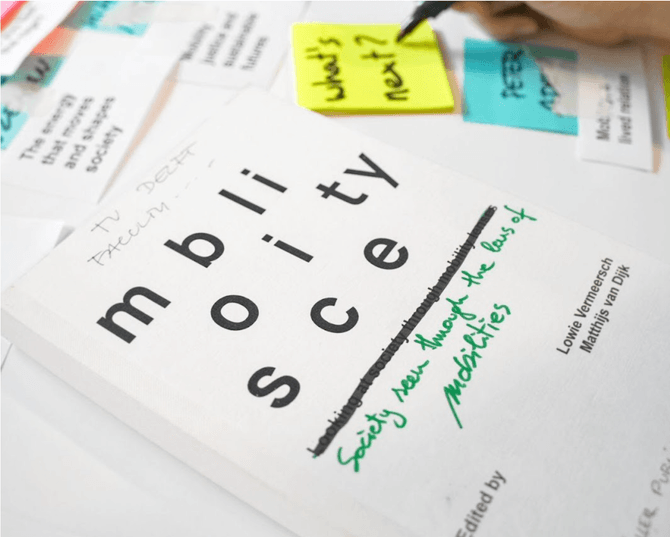 The energy
that moves
and shapes
society
Mobility,
justice and
sustainable
futures
what's
next?
PETER
lived relation
TU DELFT
FACULTY....
m b l i
o i t y
s c e
Looking at society through mobility lenses
Society seen through the lens of
mobilities
Lowie Vermeersch
Matthijs van Dijk
Edited by